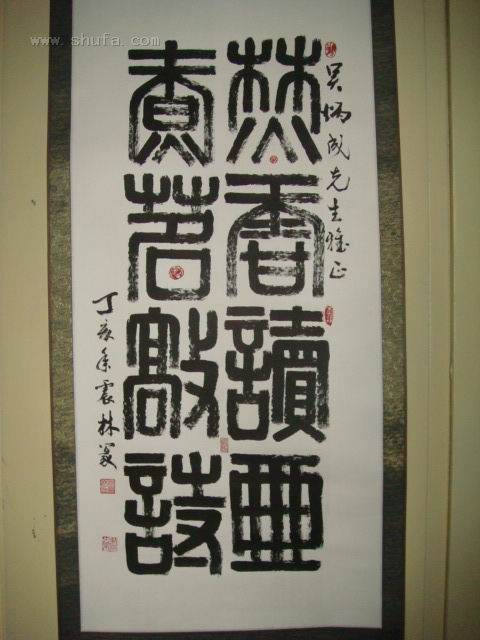 www.shufa.com
吳炳成先生雅正
焚香讀畫
煮茗敲詩
丁亥震林篆